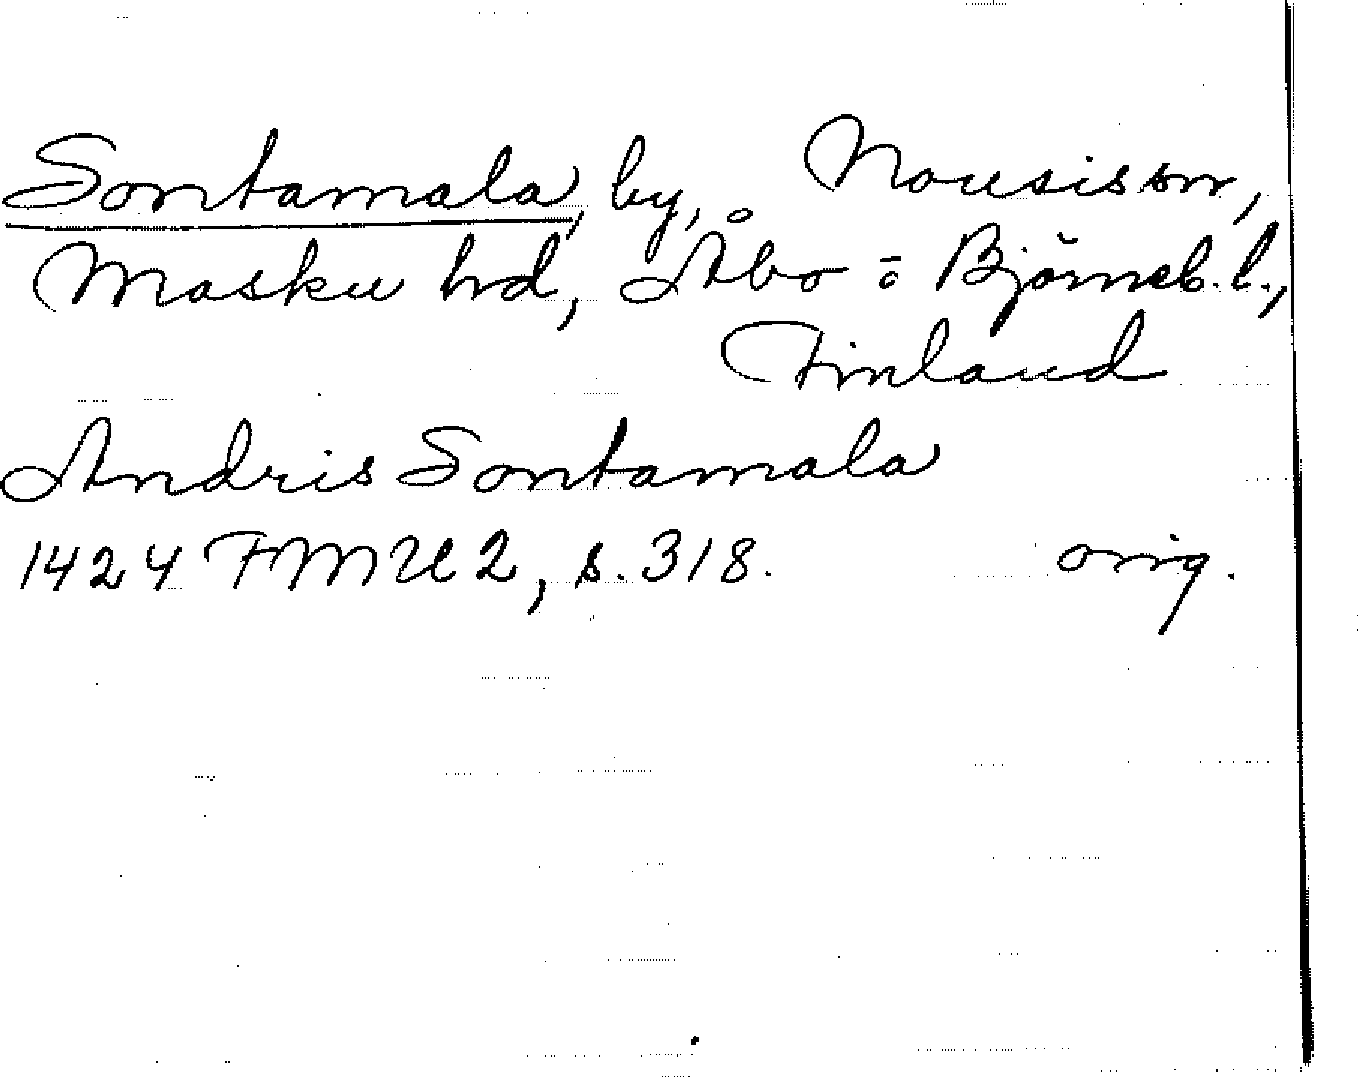 Sontamala, by, Nousis sn,
Masku hd, Åbo o Björneb. l.,
Finland
Andris Sontamala
1424 FMU 2, s. 318. orig.